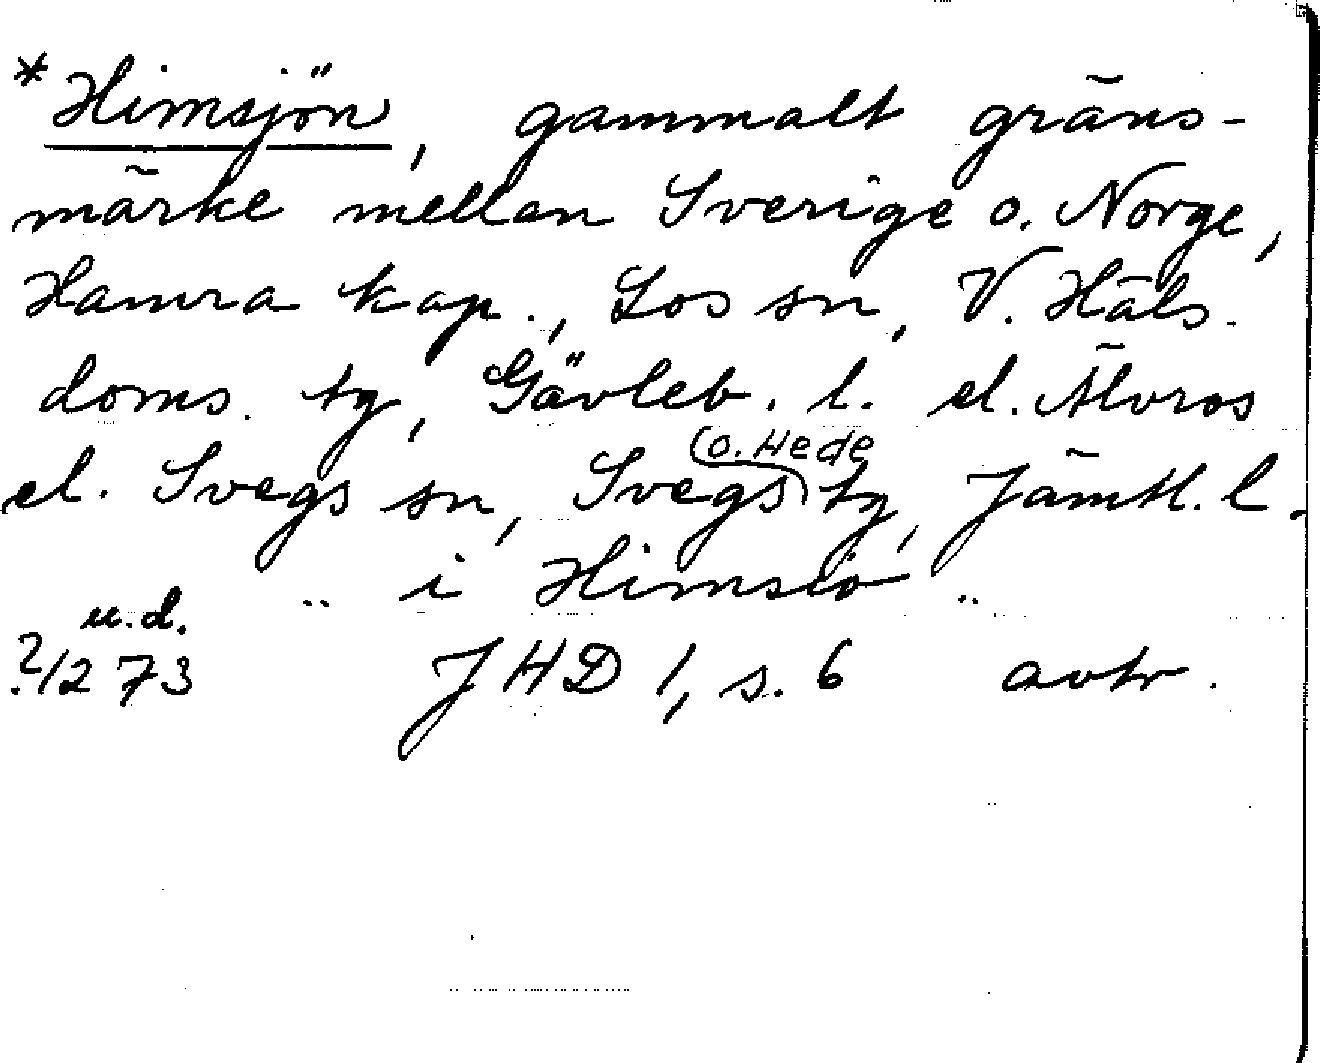 *Himsjön, gammalt gräns-
märke mellan Sverige o. Norge,
Hamra kap., Los sn, V. Häls.
doms. tg, Gävleb. l. el. Älvros
o. Hede
el. Svegs sn, Svegs tg, Jämtl. l.
"i Himsiö"
u.d.
?/1273 JHD 1, s. 6 avtr.